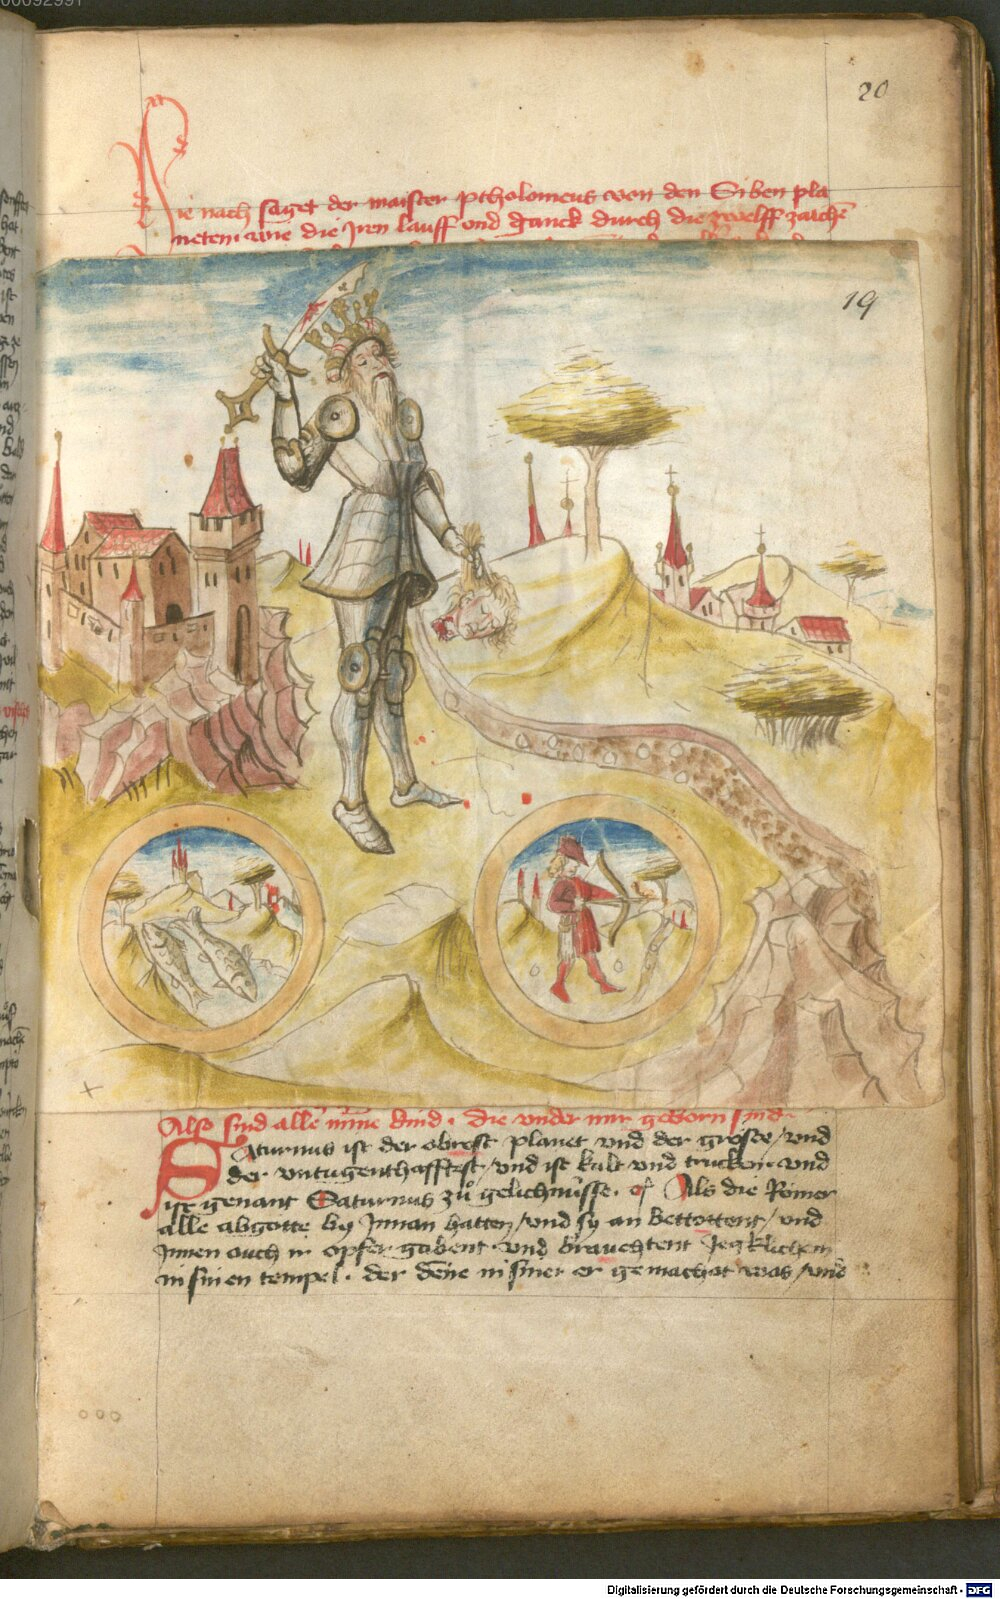 00092991
20
Hie nach saget der maister ptholomeus von den Siben pla
neten wie die Iren lauff und ganck durch die zwelff zaichē
19
Also sind alle mine kind. die under mir geborn sind.
Saturnus ist der obrost planet und der gröste / und
der untugenthafftest / und ist kalt und trucken und
ist genant Saturnus zů gelichnüsse. Als die Römer
alle abgötte by Innan hatten / und sy an bettottent / und
Innen ouch ir opfer gabent und brauchtent Jegklichem
in sinen tempel. der dene in siner er gemachot was / und
Digitalisierung gefördert durch die Deutsche Forschungsgemeinschaft - DFG